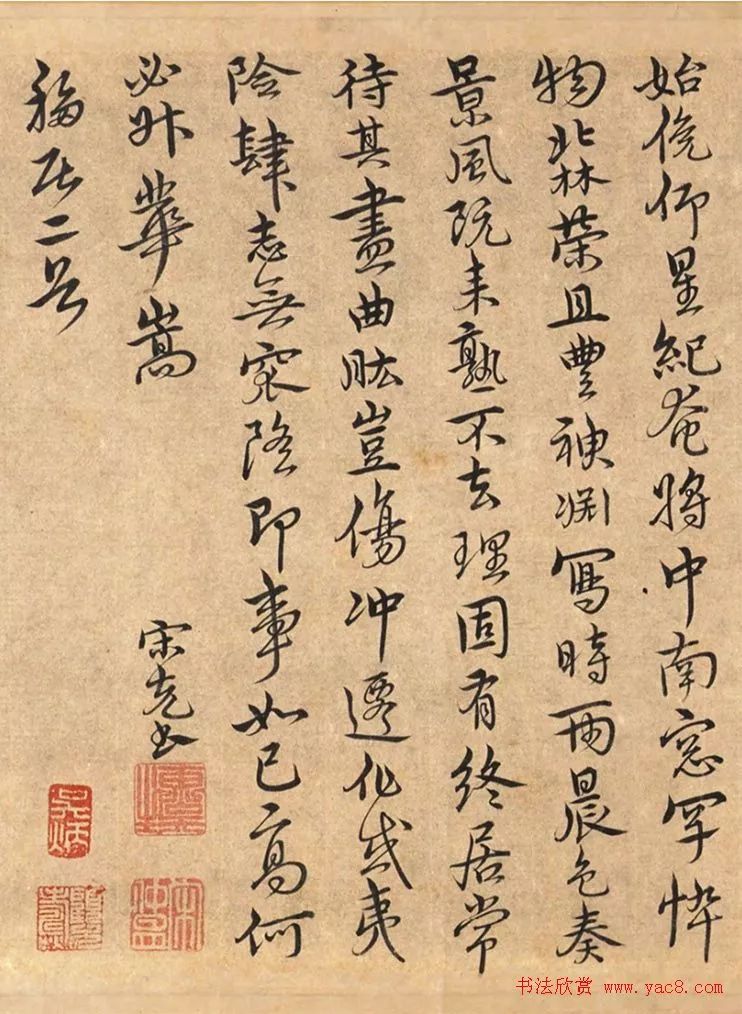 始俛仰星紀奄將中南窓罕悴
物北林榮且豐神渊寫時雨晨色奏
景風既来孰不去理固有終居常
待其盡曲肱豈傷冲遷化或夷
險肆志無窊隆即事如已高何
必升華嵩
宋克書
书法欣赏 www.yac8.com